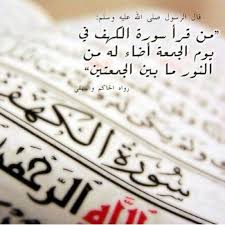 قال الرسول صلى الله عليه وسلم:
"من قرأ سورة الكهف في
يوم الجمعة أضاء له من
النور ما بين الجمعتين"
رواه الحاكم والبيهقي
سورة الكهف
الله الرحمن